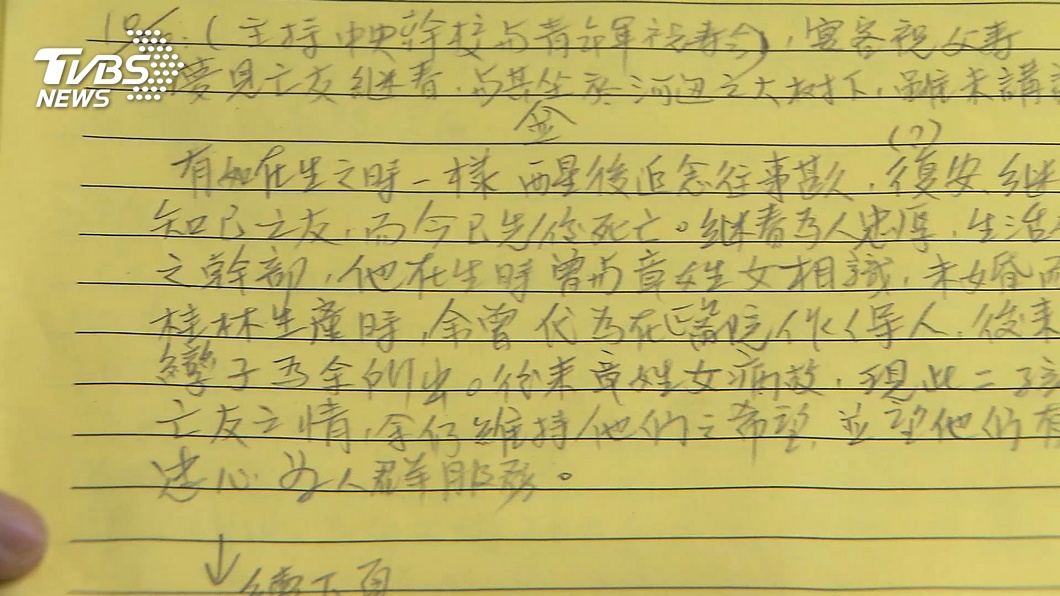 TVBS
NEWS
(主持中央幹校与青年軍祝壽会),宴客祝父壽
夢見亡友継春,与其坐於河边之大树下,雖未講
金
(?)
有如在生之時一樣 醒後追念往事甚久,復安、继
知己之友,而今已先你死亡。继春为人忠厚,生活
之幹部,他在生時曾与章姓女相識,未婚而
桂林生產時,余曾代为在医院作保人,後来
孿子为余所出。後来章姓女病故,現此二孩
亡友之情,余仍維持他们之希望,並望他们有
忠心为人群服務。
↓續下頁